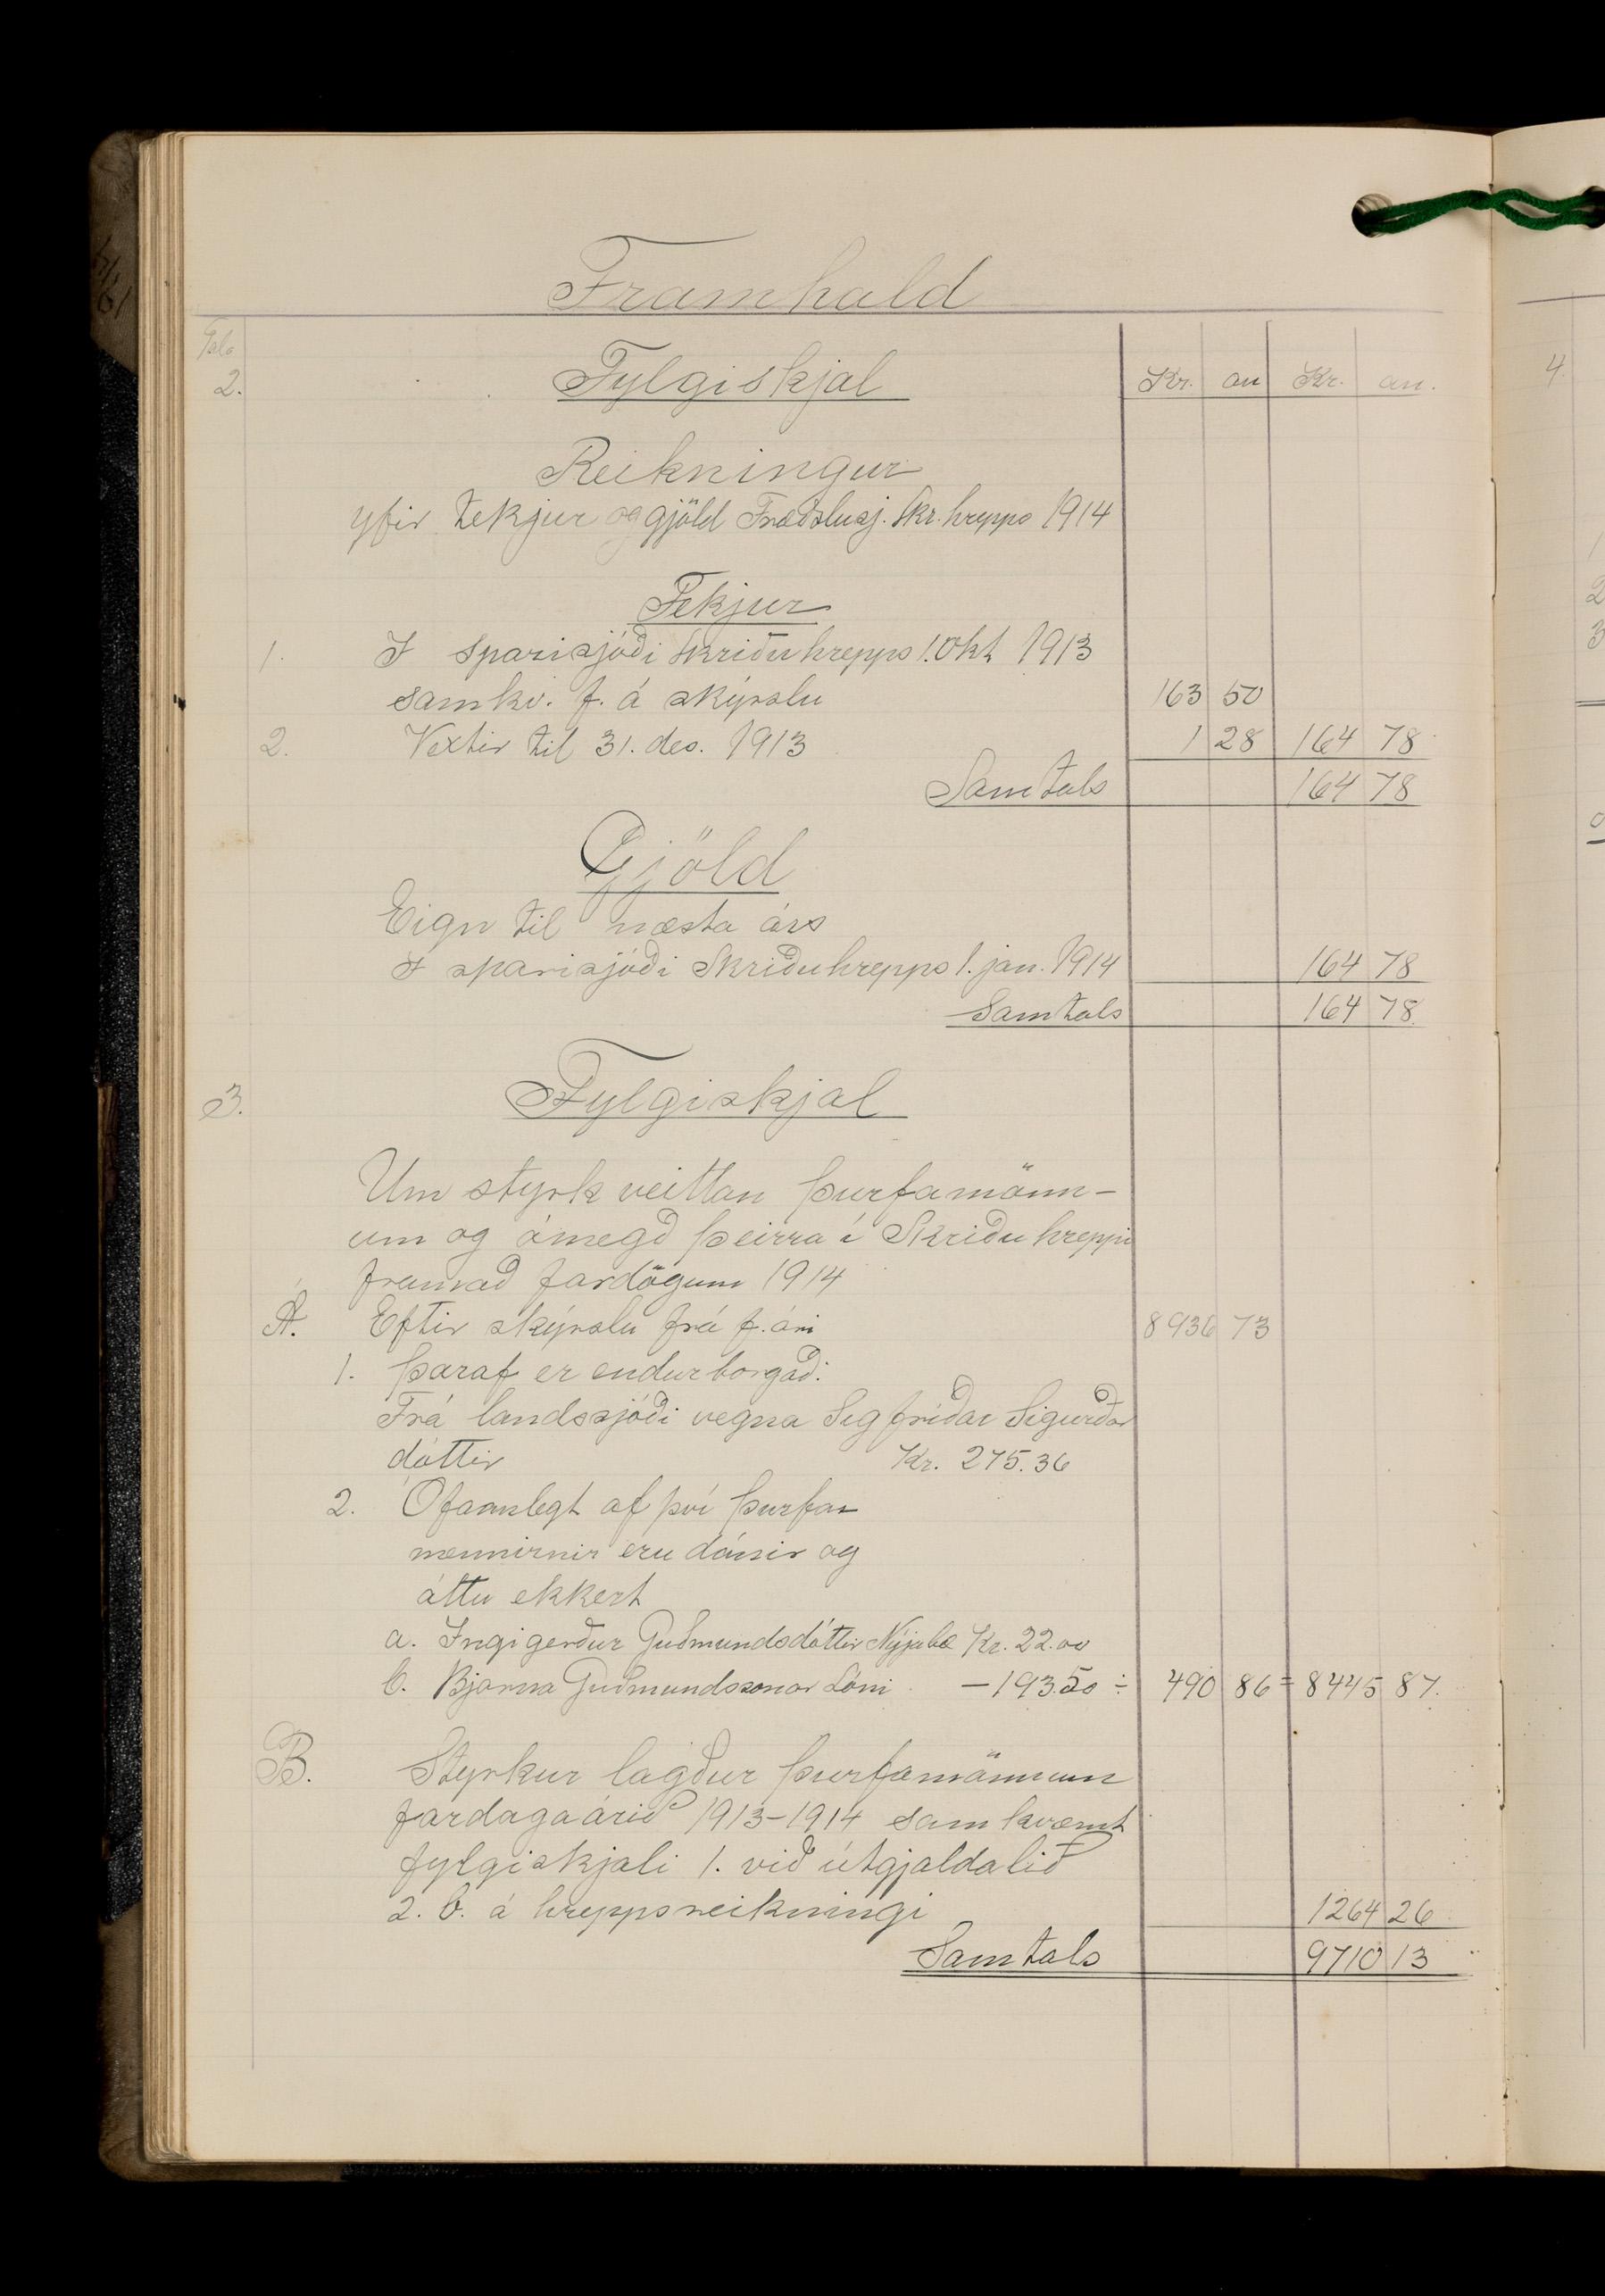 Framhald
Tala
2. Fylgiskjal Kr. au Kr. au.
Reikningur
yfir tekjur og gjöld Fræðslusj. Skr. hrepps 1914
Tekjur
1. Í sparisjóði Skriðuhrepps 1. Okt 1913
samkv. f. á skýrslu 163 50
2. Vextir til 31. des. 1913 1 28 164 78
Samtals 164 78
Gjöld
Eign til næsta árs
Í sparisjóði Skriðuhrepps 1. jan. 1914 164 78
Samtals 164 78
3. Fylgiskjal
Um styrk veittan þurfamönn-
um og ómegð þeirra í Skriðuhreppi
framað fardögum 1914
A. Eftir skýrslu frá f. ári 8936 73
1. Þaraf er endurborgað:
Frá landssjóði vegna Sigfríðar Sigurðar
dóttir Kr. 275.36
2. Ófáanlegt af því þurfa-
mennirnir eru dánir og
áttu ekkert
a. Ingigerður Guðmundsdóttir Nýjabæ Kr. 22.00
b. Bjarna Guðmundssonar Lóni – 193.50 ÷ 490 86 = 8445 87.
B. Styrkur lagður þurfamönnum
fardagaárið 1913-1914 samkvæmt
fylgiskjali 1. við útgjaldalið
2. b. á hreppsreikningi 1264 26
Samtals 9710 13
4.